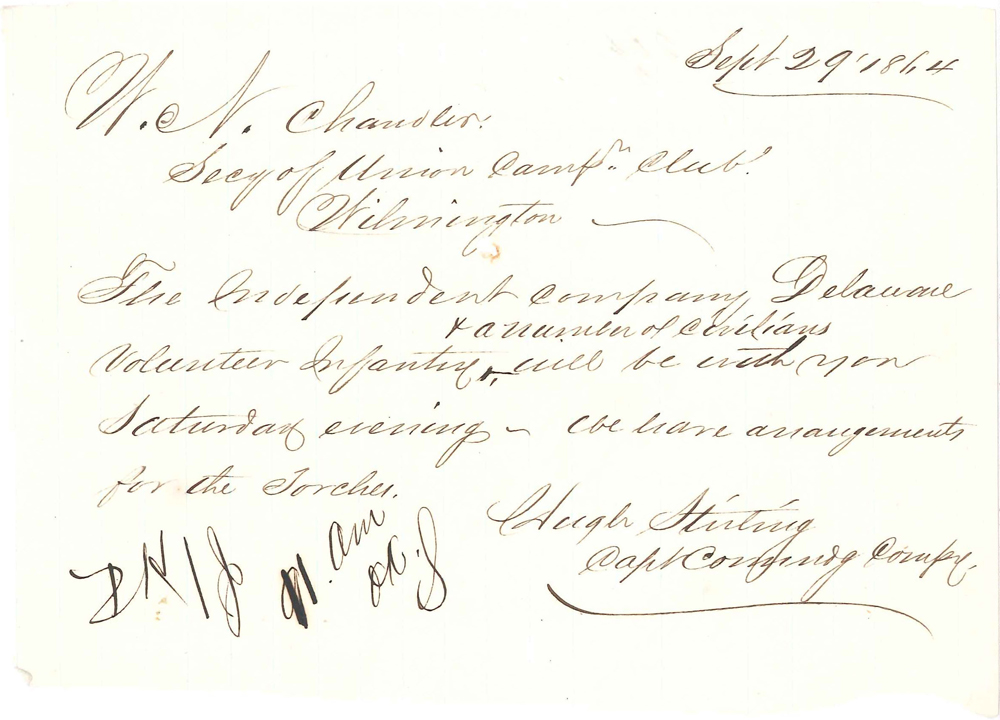 Sept 29 1864
W. N. Chandler.
Secy of Union Campn Club
Wilmington
The Independent company, Delaware
& a number of civilians
Volunteer Infantry, will be with you
Saturday evening – We have arrangements
for the Torches.
Hugh Stirling
Capt Commndg Compy.